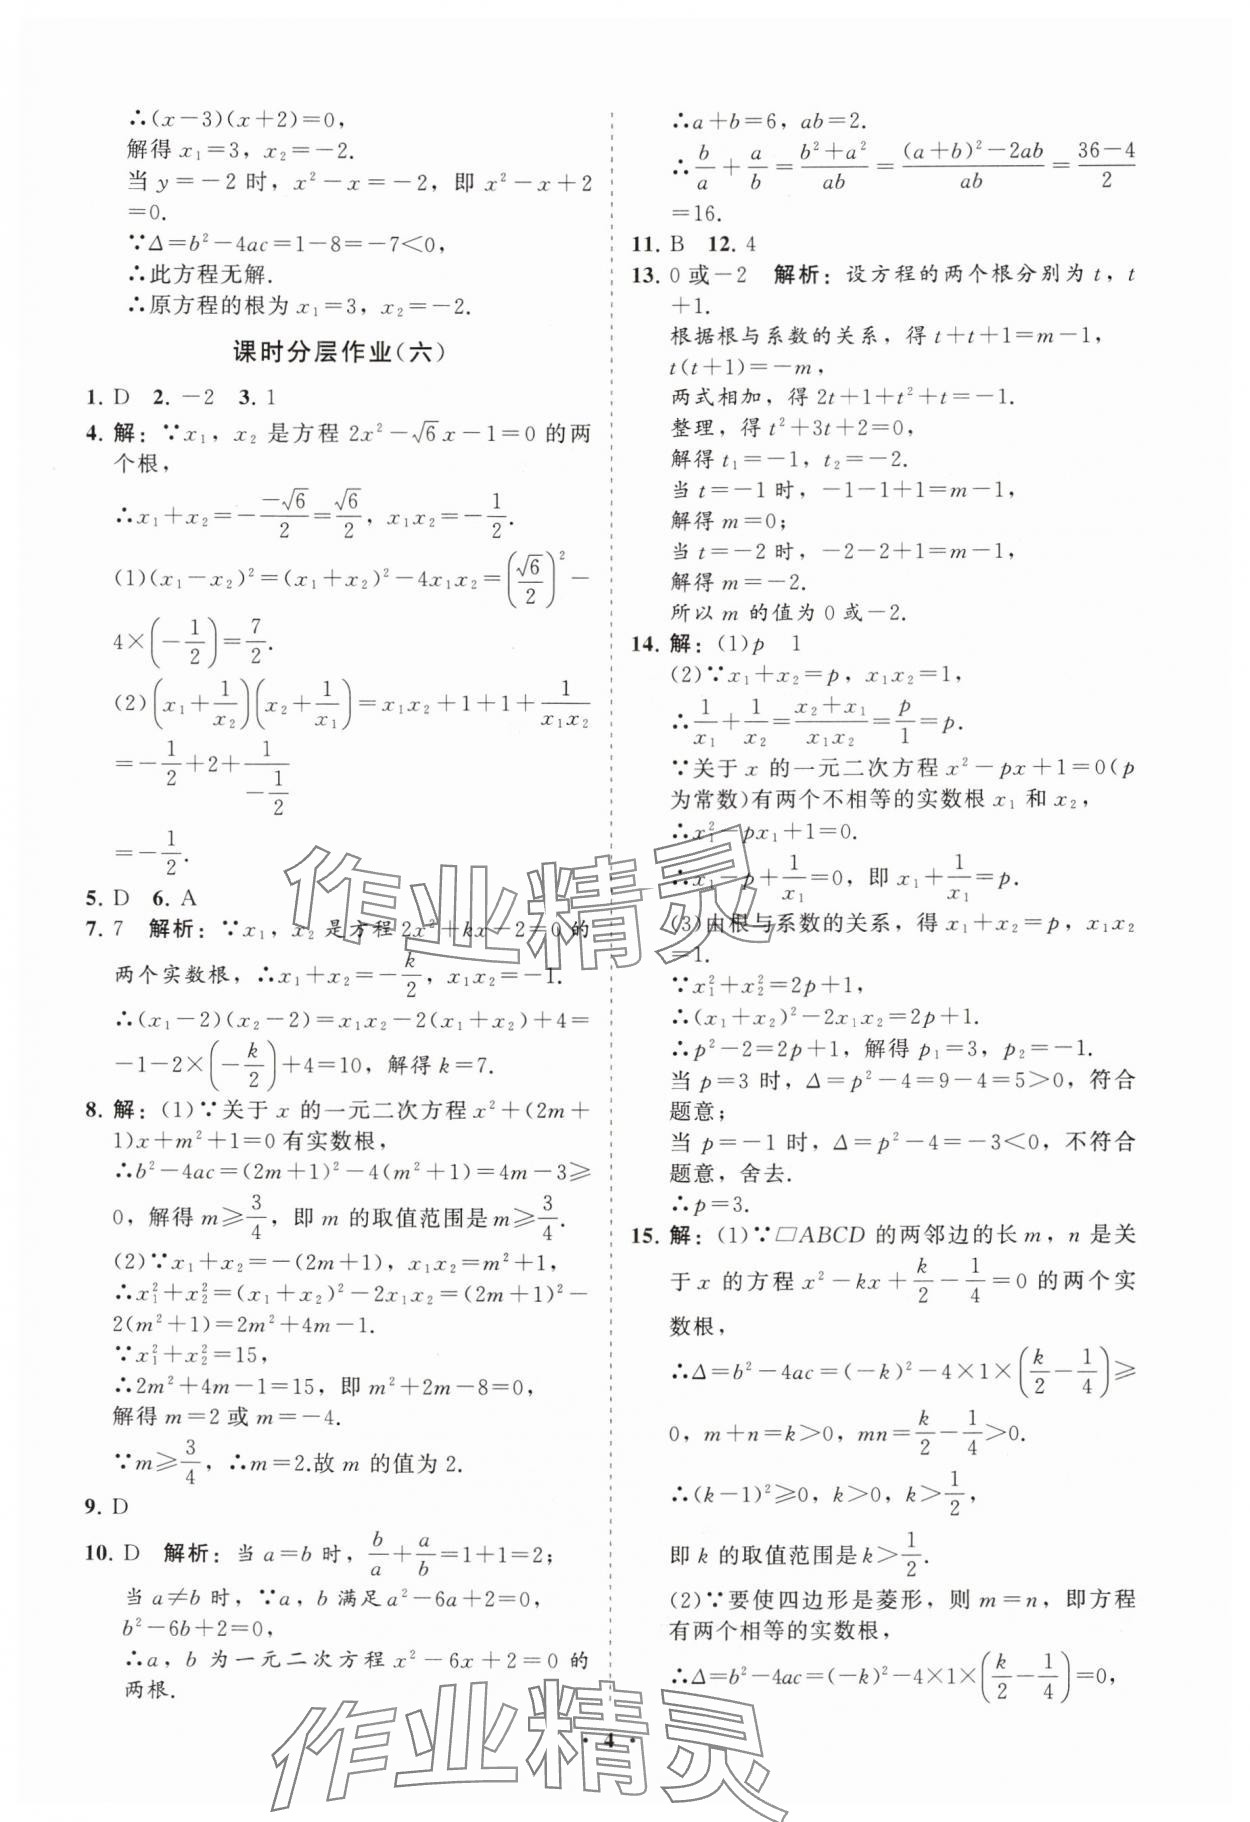 ∴(x-3)(x+2)=0,
解得 x₁=3, x₂=-2.
当 y=-2 时, x²-x=-2, 即 x²-x+2
=0.
∵Δ=b²-4ac=1-8=-7<0,
∴此方程无解.
∴原方程的根为 x₁=3, x₂=-2.
课时分层作业(六)
1. D 2. -2 3. 1
4. 解: ∵x₁, x₂ 是方程 2x²-√6x-1=0 的两
个根,
∴x₁+x₂=-(-√6)/2=√6/2, x₁x₂=-1/2.
(1)(x₁-x₂)²=(x₁+x₂)²-4x₁x₂=(√6/2)²-
4×(-1/2)=7/2.
(2)(x₁+1/x₂)(x₂+1/x₁)=x₁x₂+1+1+1/(x₁x₂)
=-1/2+2+1/(-1/2)
=-1/2.
5. D 6. A
7. 7 解析: ∵x₁, x₂ 是方程 2x²+kx-2=0 的
两个实数根, ∴x₁+x₂=-k/2, x₁x₂=-1.
∴(x₁-2)(x₂-2)=x₁x₂-2(x₁+x₂)+4=
-1-2×(-k/2)+4=10, 解得 k=7.
8. 解: (1)∵关于 x 的一元二次方程 x²+(2m+
1)x+m²+1=0 有实数根,
∴b²-4ac=(2m+1)²-4(m²+1)=4m-3≥
0, 解得 m≥3/4, 即 m 的取值范围是 m≥3/4.
(2)∵x₁+x₂=-(2m+1), x₁x₂=m²+1,
∴x₁²+x₂²=(x₁+x₂)²-2x₁x₂=(2m+1)²-
2(m²+1)=2m²+4m-1.
∵x₁²+x₂²=15,
∴2m²+4m-1=15, 即 m²+2m-8=0,
解得 m=2 或 m=-4.
∵m≥3/4, ∴m=2.故 m 的值为 2.
9. D
10. D 解析: 当 a=b 时, b/a+a/b=1+1=2;
当 a≠b 时, ∵a, b 满足 a²-6a+2=0,
b²-6b+2=0,
∴a, b 为一元二次方程 x²-6x+2=0 的
两根.
∴a+b=6, ab=2.
∴b/a+a/b=(b²+a²)/ab=((a+b)²-2ab)/ab=(36-4)/2
=16.
11. B 12. 4
13. 0 或-2 解析: 设方程的两个根分别为 t, t
+1.
根据根与系数的关系, 得 t+t+1=m-1,
t(t+1)=-m,
两式相加, 得 2t+1+t²+t=-1.
整理, 得 t²+3t+2=0,
解得 t₁=-1, t₂=-2.
当 t=-1 时, -1-1+1=m-1,
解得 m=0;
当 t=-2 时, -2-2+1=m-1,
解得 m=-2.
所以 m 的值为 0 或-2.
14. 解: (1)p 1
(2)∵x₁+x₂=p, x₁x₂=1,
∴1/x₁+1/x₂=(x₂+x₁)/(x₁x₂)=p/1=p.
∵关于 x 的一元二次方程 x²-px+1=0(p
为常数)有两个不相等的实数根 x₁ 和 x₂,
∴x₁²-px₁+1=0.
∴x₁-p+1/x₁=0, 即 x₁+1/x₁=p.
(3)由根与系数的关系, 得 x₁+x₂=p, x₁x₂
=1.
∵x₁²+x₂²=2p+1,
∴(x₁+x₂)²-2x₁x₂=2p+1.
∴p²-2=2p+1, 解得 p₁=3, p₂=-1.
当 p=3 时, Δ=p²-4=9-4=5>0, 符合
题意;
当 p=-1 时, Δ=p²-4=-3<0, 不符合
题意, 舍去.
∴p=3.
15. 解: (1)∵▱ABCD 的两邻边的长 m, n 是关
于 x 的方程 x²-kx+k/2-1/4=0 的两个实
数根,
∴Δ=b²-4ac=(-k)²-4×1×(k/2-1/4)≥
0, m+n=k>0, mn=k/2-1/4>0.
∴(k-1)²≥0, k>0, k>1/2,
即 k 的取值范围是 k>1/2.
(2)∵要使四边形是菱形, 则 m=n, 即方程
有两个相等的实数根,
∴Δ=b²-4ac=(-k)²-4×1×(k/2-1/4)=0,
· 4 ·
作业精灵
作业精灵